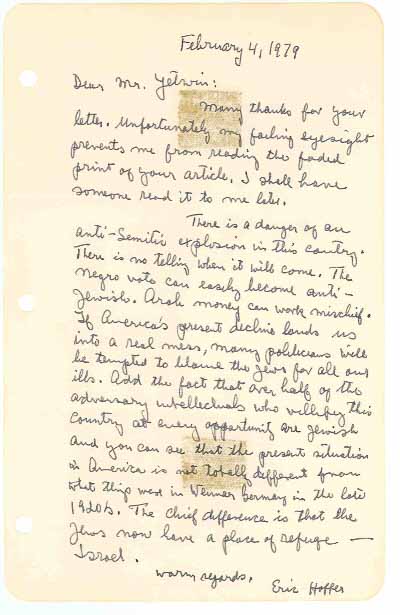 February 4, 1979
Dear Mr. Yetwin:
Many thanks for your
letter. Unfortunately my failing eyesight
prevents me from reading the faded
print of your article. I shall have
someone read it to me later.
There is a danger of an
anti-Semitic explosion in this country.
There is no telling when it will come. The
negro vote can easily become anti-
Jewish. Arab money can work mischief.
If America's present decline lands us
into a real mess, many politicians will
be tempted to blame the Jews for all our
ills. Add the fact that over half of the
adversary intellectuals who villifey this
country at every opportunity are Jewish
and you can see that the present situation
in America is not totally different from
what things were in Weimar Germany in the late
1920s. The chief difference is that the
Jews now have a place of refuge —
Israel.
warm regards.
Eric Hoffer